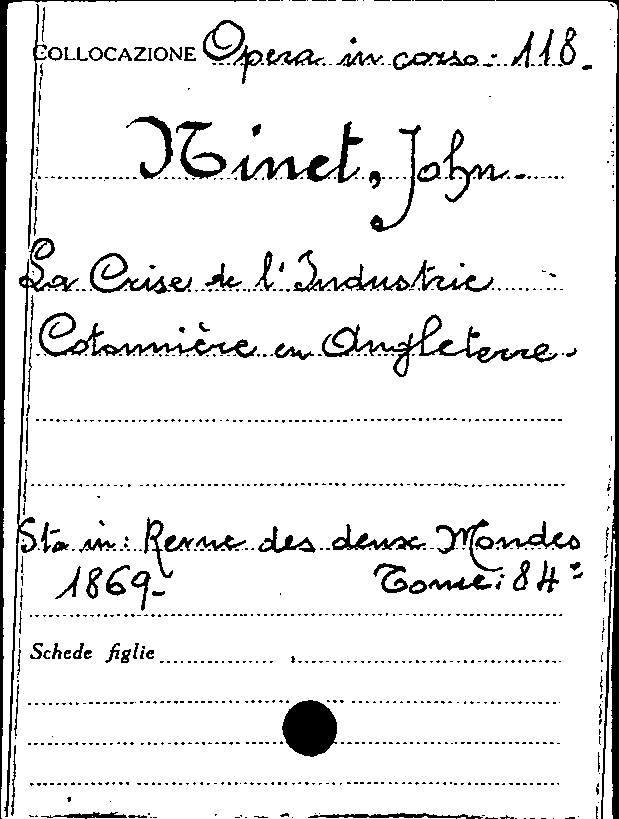 COLLOCAZIONE Opera in corso: 118.
Ninet, John.
La Crise de l'Industrie
Cotonnière en Angleterre.
Sta in: Revue des deux Mondes
1869- Tome: 84=
Schede figlie